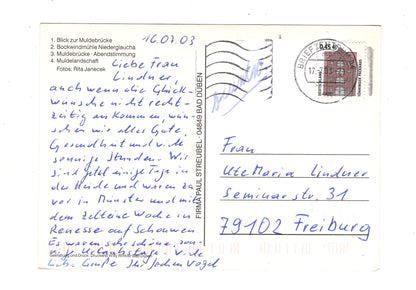 1. Blick zur Muldebrücke
2. Bockwindmühle Niederglaucha
3. Muldebrücke - Abendstimmung
4. Muldelandschaft
Fotos: Rita Janecek
16.07.03
Liebe Frau
Lindner,
auch wenn die Glück-
wünsche nicht recht-
zeitig ankommen, wün-
schen wir alles Gute,
Gesundheit und viele
sonnige Stunden. Wir
sind jetzt einige Tage in
der Heide und waren zu-
vor in Münster und mit
dem Zelt eine Woche in
Renesse auf Schouwen.
Es waren sehr schöne, son-
nige Urlaubstage. Viele
liebe Grüße Ihr Jochen Vogel
FIRMA PAUL STREUBEL · 04849 BAD DÜBEN
BRIEF
0,45
Frau
Ute Maria Lindner
Seminarstr. 31
79102 Freiburg